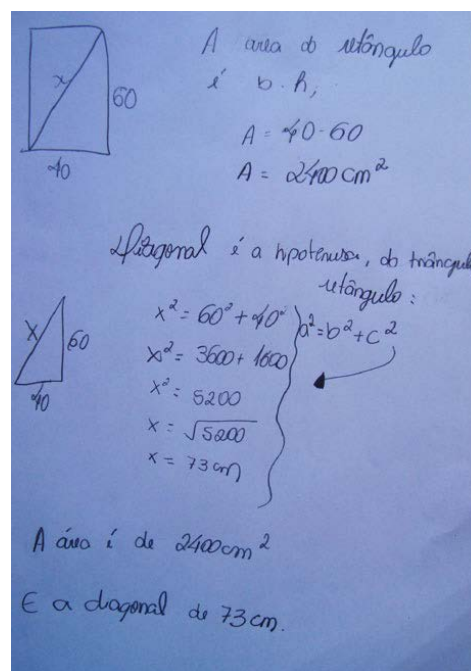 A area do retângulo
é b. h,
x
60
40
A = 40.60
A = 2400 cm²
Diagonal é a hpotenusa, do triângulo
retângulo:
x² = 60² + 40²
a² = b² + c²
X
60
40
x² = 3600 + 1600
x² = 5200
x = √5200
x = 73 cm
A área é de 2400cm²
E a diagonal de 73 cm.